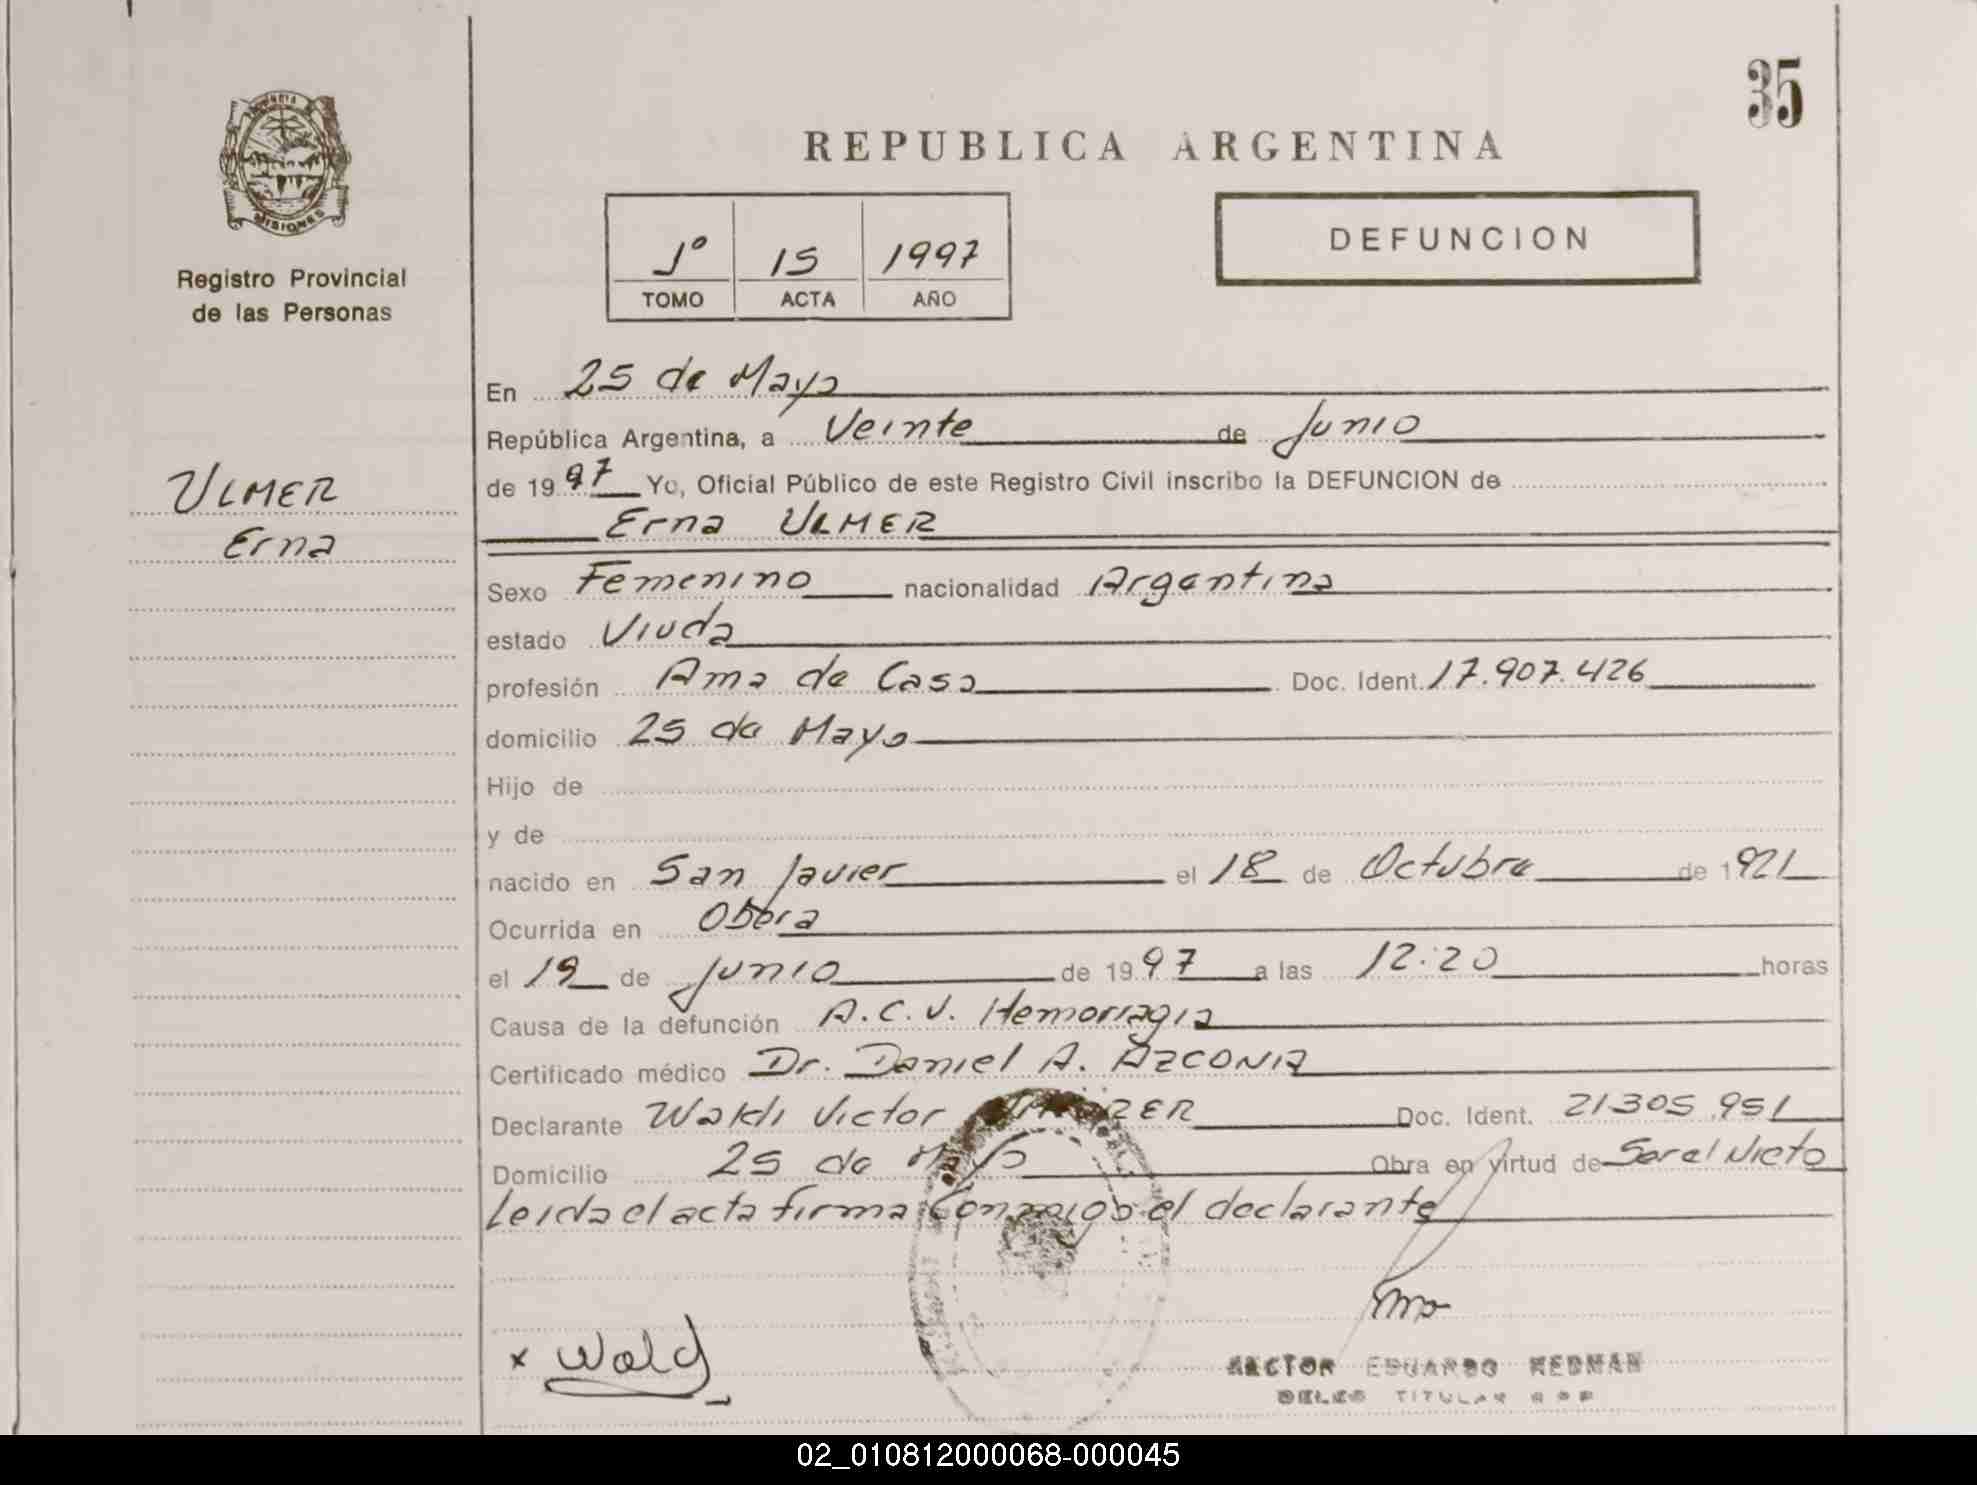 35
PROVINCIA
MISIONES
Registro Provincial
de las Personas
REPUBLICA ARGENTINA
1º 15 1997
TOMO ACTA AÑO
DEFUNCION
ULMER
Erna
En 25 de Mayo
República Argentina, a Veinte de Junio
de 1997 Yo, Oficial Público de este Registro Civil inscribo la DEFUNCION de
Erna ULMER
Sexo Femenino nacionalidad Argentina
estado Viuda
profesión Ama de Casa Doc. Ident. 17.907.426
domicilio 25 de Mayo
Hijo de
y de
nacido en San Javier el 18 de Octubre de 1921
Ocurrida en Obera
el 19 de Junio de 1997 a las 12:20 horas
Causa de la defunción A.C.V. Hemorragia
Certificado médico Dr. Daniel A. AZCONA
Declarante Waldi Victor Doc. Ident. 21305.951
Domicilio 25 de Mayo Obra en virtud de Ser el Nieto
Leida el acta firma conmigo el declarante
x Wald
HECTOR EDUARDO REDMAN
DELEG TITULAR R P P
02_010812000068-000045